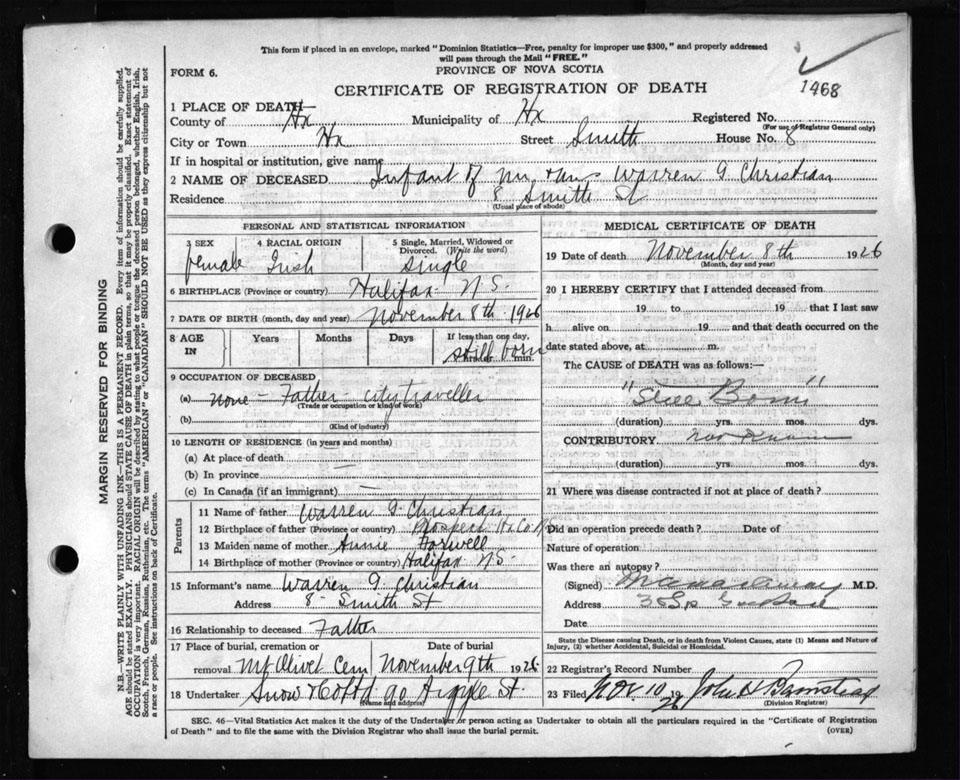 This form if placed in an envelope, marked "Dominion Statistics—Free, penalty for improper use $300," and properly addressed
will pass through the Mail "FREE."
PROVINCE OF NOVA SCOTIA
FORM 6.
CERTIFICATE OF REGISTRATION OF DEATH
1968
1 PLACE OF DEATH
County of Hx Municipality of Hx Registered No.
(For use of Registrar General only)
City or Town Hx Street Smith House No. 8
If in hospital or institution, give name
2 NAME OF DECEASED Infant of Mr. & Mrs Warren G. Christian
Residence 8 Smith St
(Usual place of abode)
PERSONAL AND STATISTICAL INFORMATION
3 SEX 4 RACIAL ORIGIN 5 Single, Married, Widowed or
Divorced. (Write the word)
female Irish single
6 BIRTHPLACE (Province or country) Halifax N.S.
7 DATE OF BIRTH (month, day and year) November 8th 1926
8 AGE IN Years Months Days If less than one day,
still born min.
9 OCCUPATION OF DECEASED
(a) none - Father - city traveller
(Trade or occupation or kind of work)
(b)
(Kind of industry)
10 LENGTH OF RESIDENCE (in years and months)
(a) At place of death —
(b) In province —
(c) In Canada (if an immigrant) —
Parents
11 Name of father Warren G. Christian
12 Birthplace of father (Province or country) Prospect Hx Co
13 Maiden name of mother Annie
14 Birthplace of mother (Province or country) Halifax NS.
15 Informant's name Warren G. Christian
Address 8 Smith St
16 Relationship to deceased Father
17 Place of burial, cremation or Date of burial
removal Mt Olivet Cem November 9th 1926
18 Undertaker Snow & Co Ltd 90 Argyle St.
(Name and address)
MEDICAL CERTIFICATE OF DEATH
19 Date of death November 8th 1926
(Month, day and year)
20 I HEREBY CERTIFY that I attended deceased from
19 to 19 that I last saw
h alive on 19 and that death occurred on the
date stated above, at m.
The CAUSE OF DEATH was as follows:—
"Still Born"
(duration) yrs. mos. dys.
CONTRIBUTORY Not Known
(duration) yrs. mos. dys.
21 Where was disease contracted if not at place of death?
Did an operation precede death? Date of
Nature of operation
Was there an autopsy?
(Signed) M.D.
Address
Date
State the Disease causing Death, or in death from Violent Causes, state (1) Means and Nature of
Injury, (2) whether Accidental, Suicidal or Homicidal.
22 Registrar's Record Number
23 Filed Nov. 10 1926 John H Barnstead
(Division Registrar)
SEC. 46—Vital Statistics Act makes it the duty of the Undertaker or person acting as Undertaker to obtain all the particulars required in the "Certificate of Registration
of Death" and to file the same with the Division Registrar who shall issue the burial permit. (OVER)
MARGIN RESERVED FOR BINDING
N.B.—WRITE PLAINLY WITH UNFADING INK—THIS IS A PERMANENT RECORD. Every item of information should be carefully supplied.
AGE should be stated EXACTLY. PHYSICIANS should STATE CAUSE OF DEATH in plain terms, so that it may be properly classified. Exact statement of
OCCUPATION is very important. RACIAL ORIGIN will be described by stating to what people or tongue the deceased person belonged, whether English, Irish,
Scotch, French, German, Russian, Ruthenian, etc. The terms "AMERICAN" or "CANADIAN" SHOULD NOT BE USED as they express citizenship but not
a race or people. See instructions on back of Certificate.